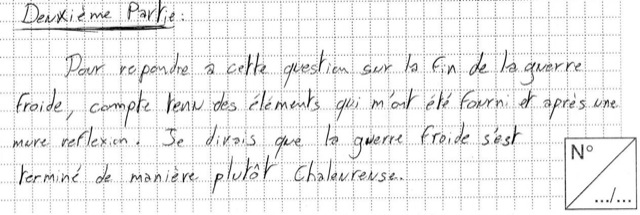 Deuxième Partie:
Pour repondre a cette question sur la fin de la guerre
froide, compte tenu des éléments qui m'ont été fourni et après une
mure reflexion. Je dirais que la guerre froide s'est
terminé de manière plutôt Chaleureuse.
N°
.../...